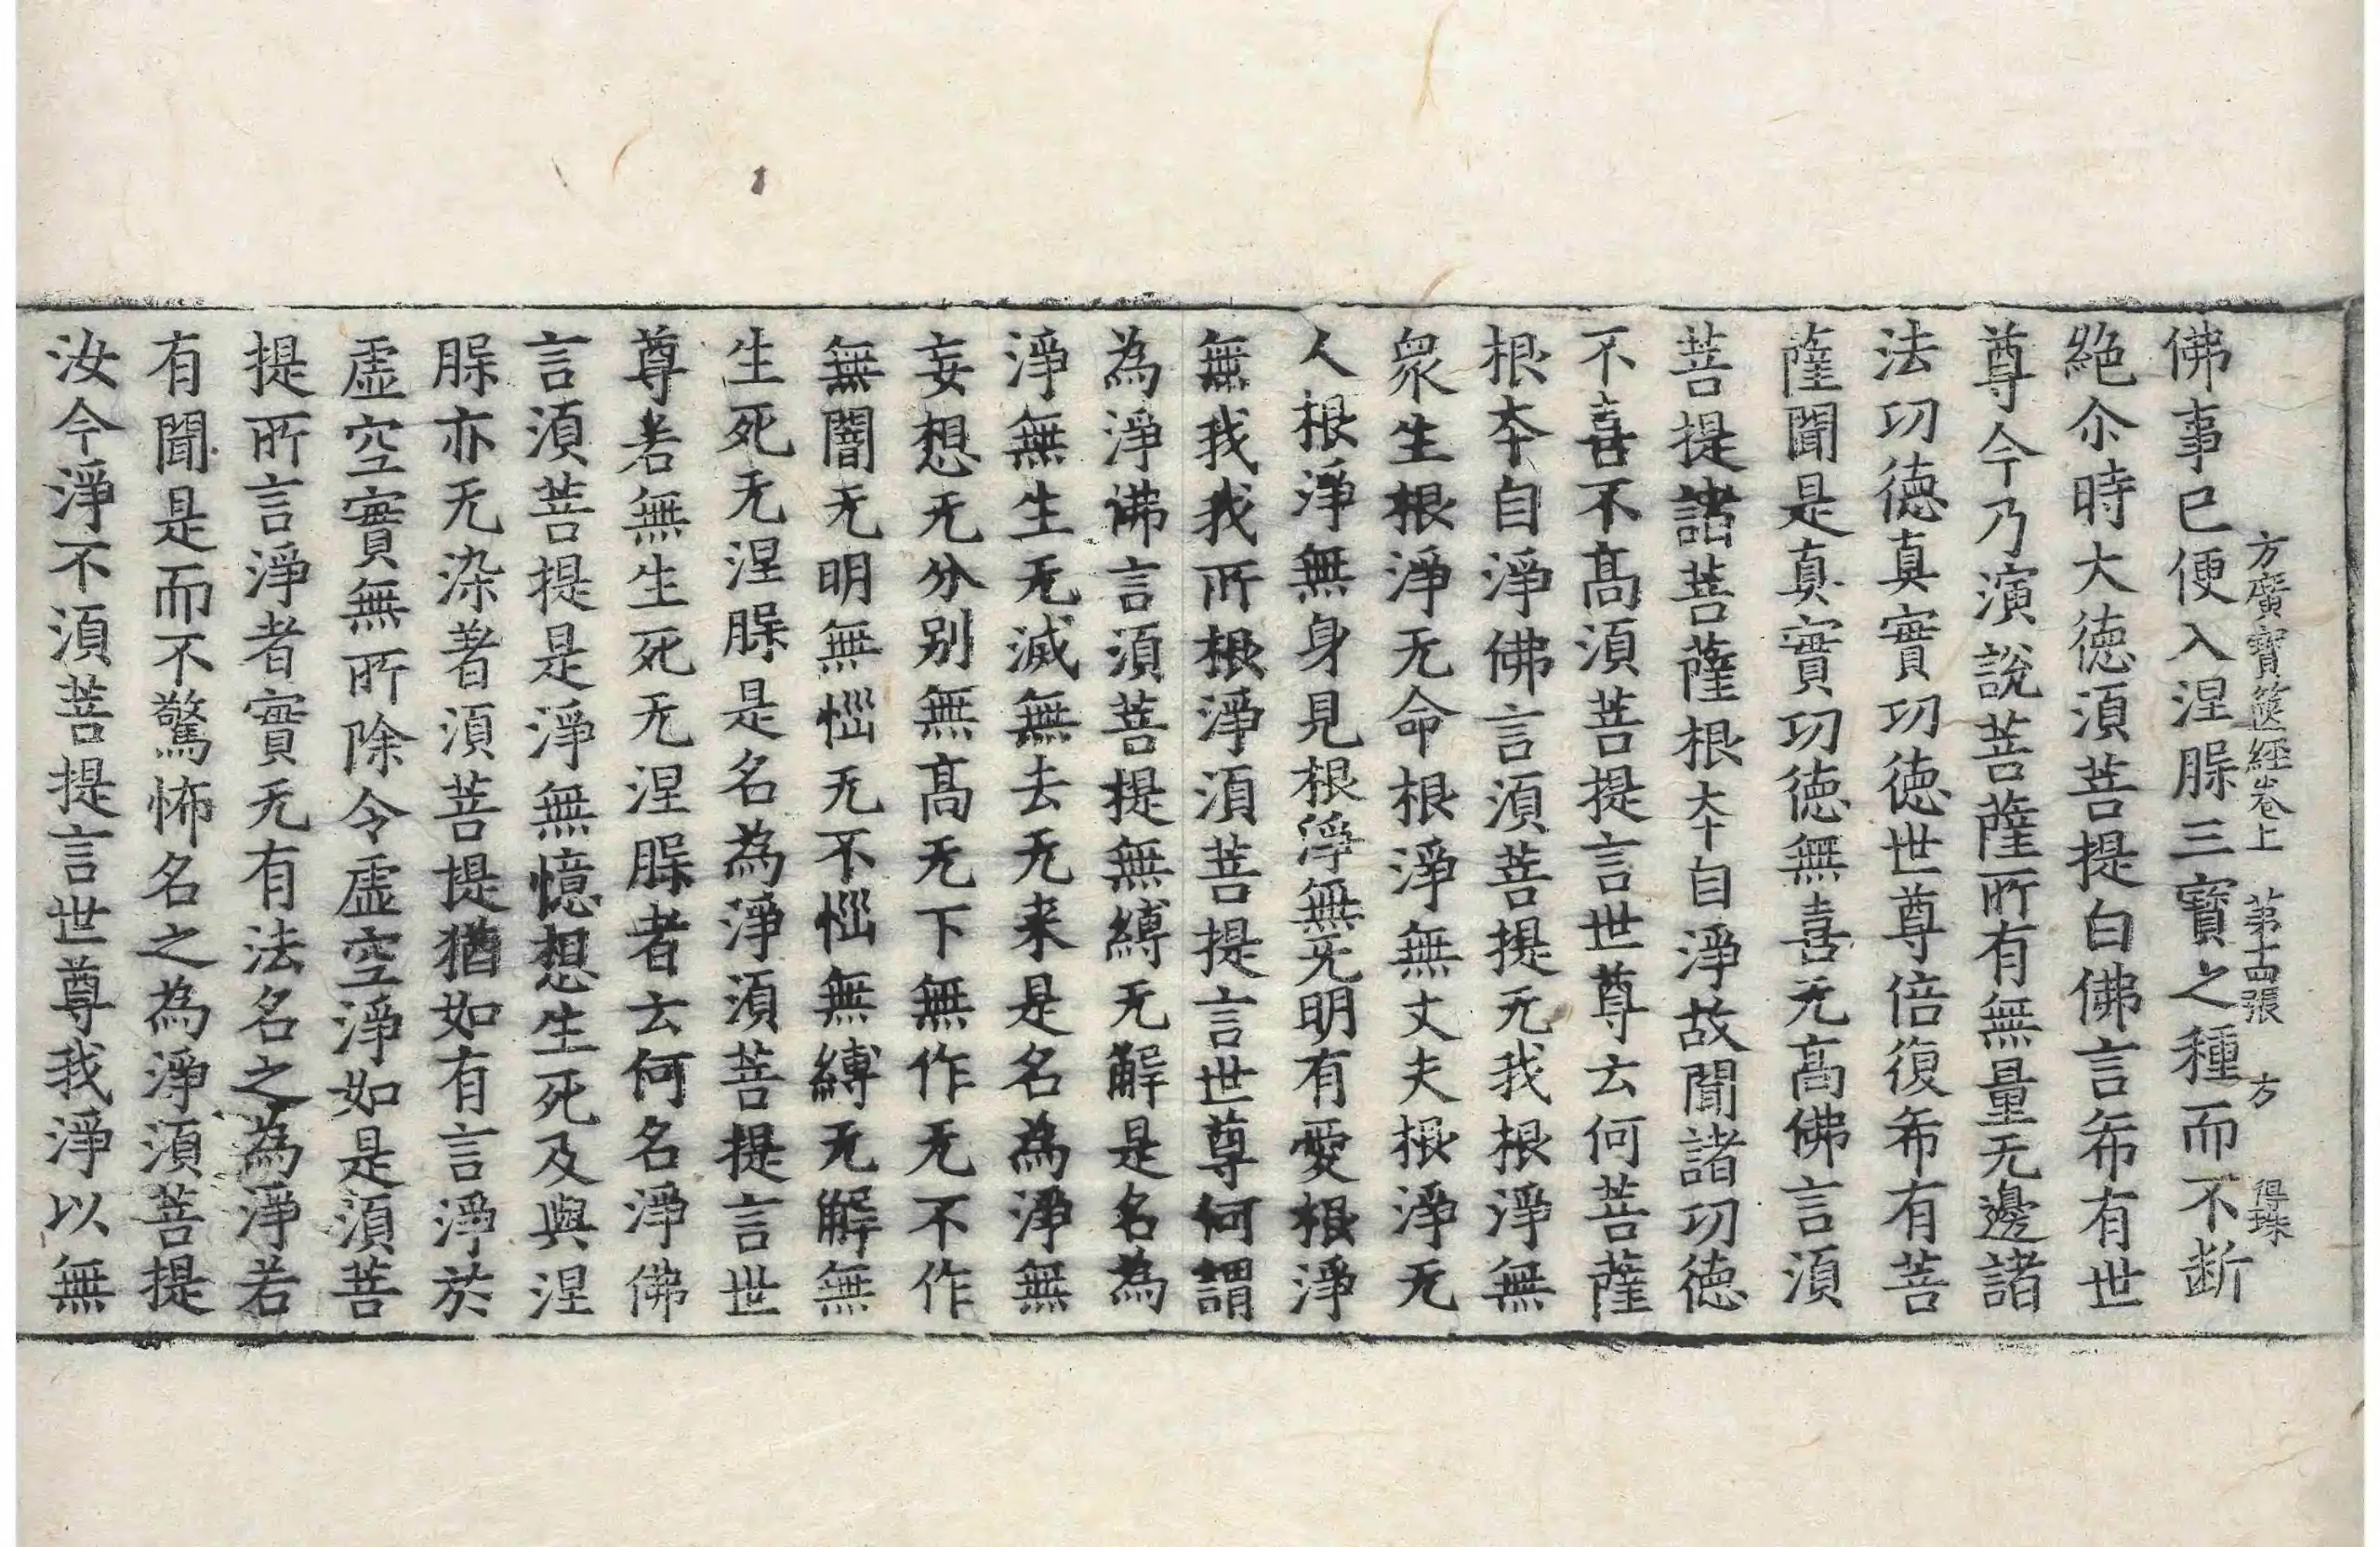 方廣寶篋經卷上 第十四張 方 得珠
佛事已便入涅脲三寶之種而不断
絶尒時大徳湏菩提白佛言希有世
尊今乃演說菩薩所有無量无邊諸
法功徳真實功徳世尊倍復希有菩
薩聞是真實功徳無喜无髙佛言湏
菩提諸菩薩根本自淨故聞諸功徳
不喜不髙湏菩提言世尊云何菩薩
根本自淨佛言湏菩提无我根淨無
衆生根淨无命根淨無丈夫根淨无
人根淨無身見根淨無无明有愛根淨
無我我所根淨湏菩提言世尊何謂
為淨佛言湏菩提無縛无解是名為
淨無生无滅無去无来是名為淨無
妄想无分别無髙无下無作无不作
無闇无明無惱无不惱無縛无解無
生死无涅脲是名為淨湏菩提言世
尊若無生死无涅脲者云何名淨佛
言湏菩提是淨無憶想生死及與涅
脲亦无染著湏菩提猶如有言淨於
虛空實無所除令虛空淨如是湏菩
提所言淨者實无有法名之為淨若
有聞是而不驚怖名之為淨湏菩提
汝今淨不湏菩提言世尊我淨以無